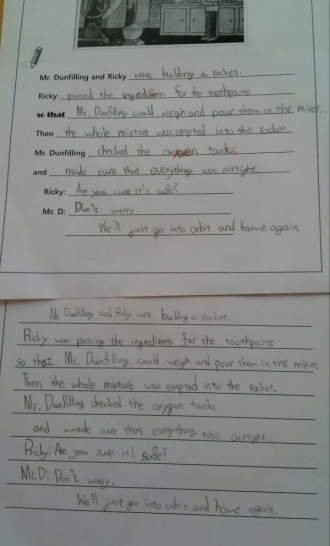 Mr. Dunfilling and Ricky were building a rocket.
Ricky passed the ingredients for the toothpaste
so that Mr. Dunfilling could weigh and pour them in the mixer.
Then the whole mixture was emptied into the rocket.
Mr. Dunfilling checked the oxygen tanks
and made sure that everything was airtight.
Ricky: Are you sure it's safe?
Mr. D: Don't worry.
We'll just go into orbit and home again.
Mr. Dunfilling and Ricky were building a rocket.
Ricky was passing the ingredients for the toothpaste
so that Mr. Dunfilling could weigh and pour them in the mixer.
Then the whole mixture was emptied into the rocket.
Mr. Dunfilling checked the oxygen tanks
and made sure that everything was airtight.
Ricky: Are you sure it's safe?
Mr. D: Don't worry.
We'll just go into orbit and home again.